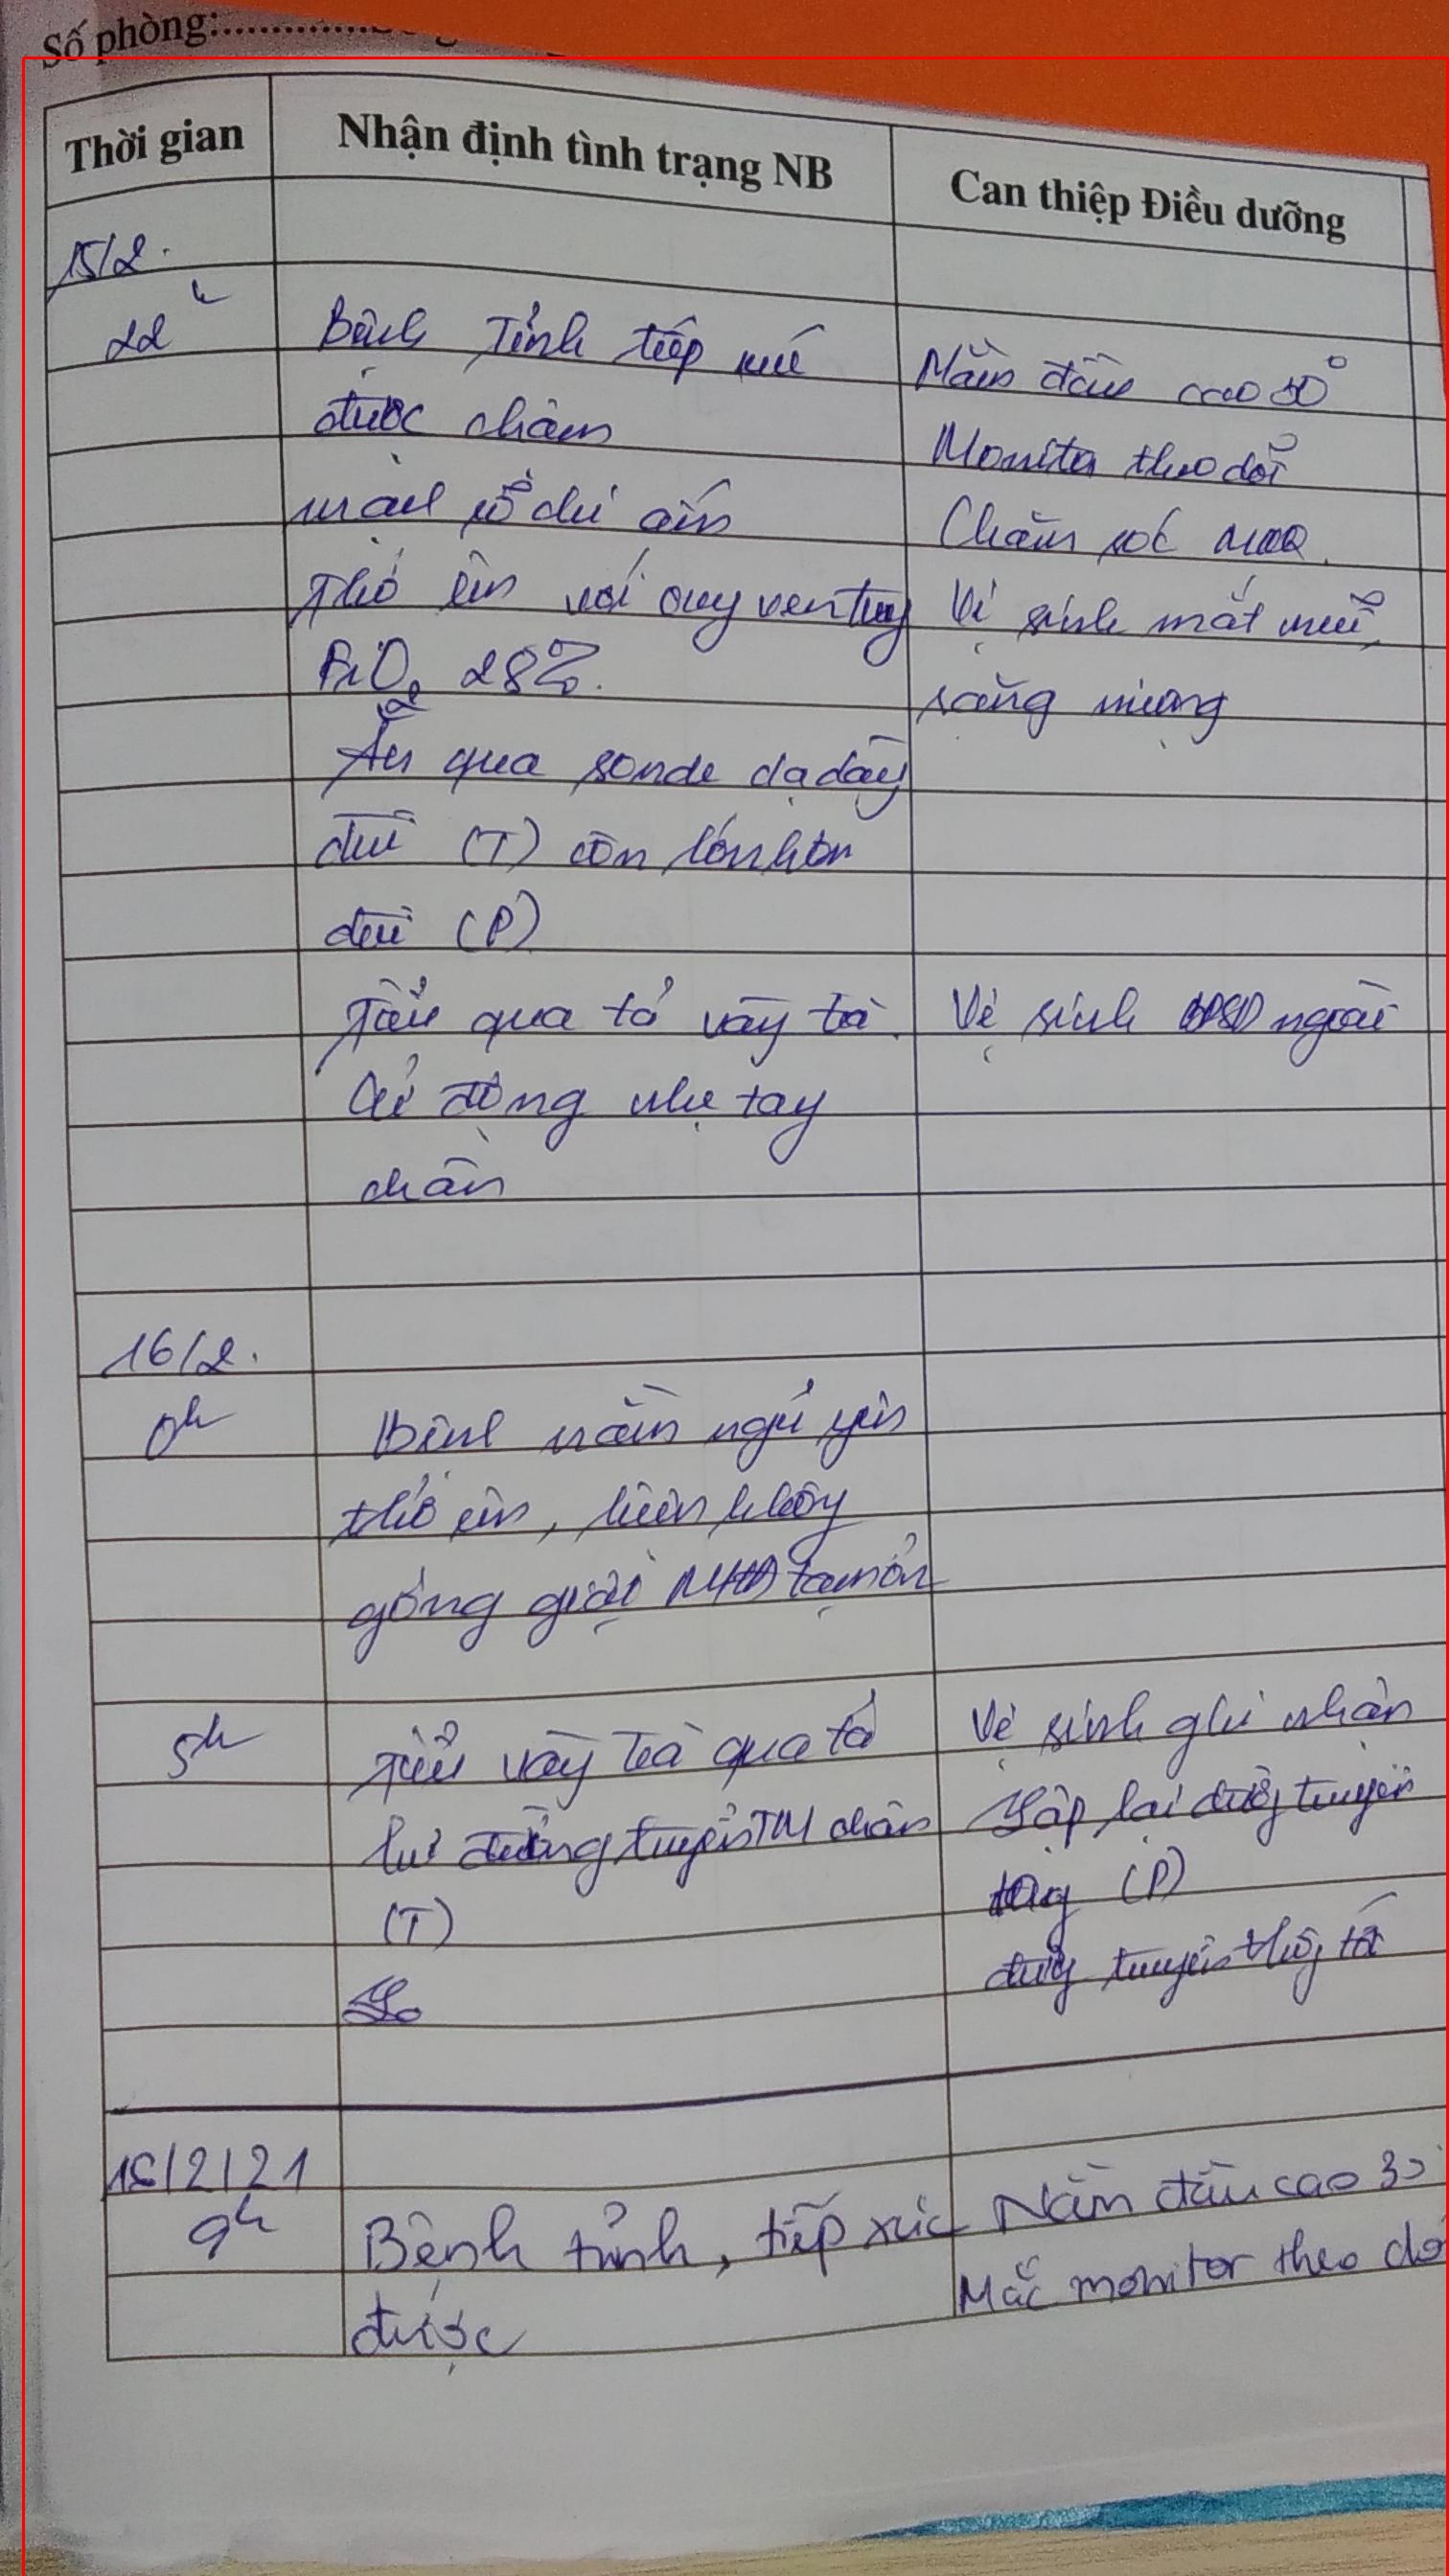 Số phòng:..............
Thời gian Nhận định tình trạng NB Can thiệp Điều dưỡng
15/2.
22h Bệnh Tỉnh tiếp xúc Nằm đầu cao 30°
được chậm Monitor theo dõi
mạch Chăm sóc
Thở êm với oxy ventury Vệ sinh mắt mũi,
FiO2 28%. răng miệng
Ăn qua sonde dạ dày
đùi (T) còn lớn hơn
đùi (P)
Tiểu qua tả vàng trà. Vệ sinh BPSD ngoài
Cử động nhẹ tay
chân
16/2.
0h Bệnh nằm ngủ yên
thở êm, hiện không
gồng giật tạm ổn
5h Tiểu vàng trà qua tả Vệ sinh ghi nhận
lưu đường truyền TM chân Lập lại đường truyền
(T) tay (P)
đường truyền thông tốt
18/2/21
9h Bệnh tỉnh, tiếp xúc Nằm đầu cao 30
được Mắc monitor theo dõ